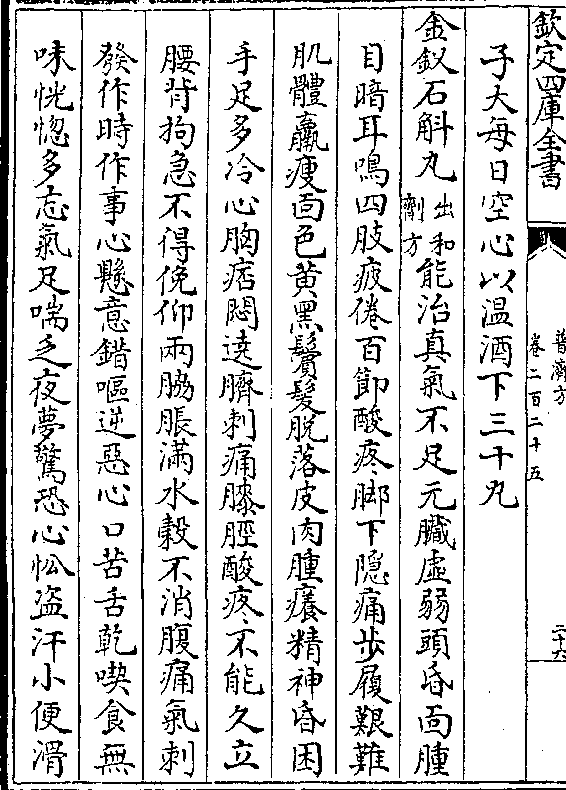 欽定四庫全書
普濟方
卷二百二十五
二十六
子大每日空心以温酒下三十丸
金釵石斛丸出和劑方能治真氣不足元臓虚弱頭昏面腫
目暗耳鳴四肢疲倦百節酸疼脚下隠痛步履艱難
肌體羸瘦面色黄黑鬢髮脱落皮肉腫癢精神昏困
手足多冷心胸痞悶遶臍刺痛膝脛酸疼不能久立
腰背拘急不得俛仰兩脇脹滿水穀不消腹痛氣刺
發作時作事心懸意錯嘔逆惡心口苦舌乾喫食無
味恍惚多忘氣足喘乏夜夢驚恐心忪盗汗小便滑